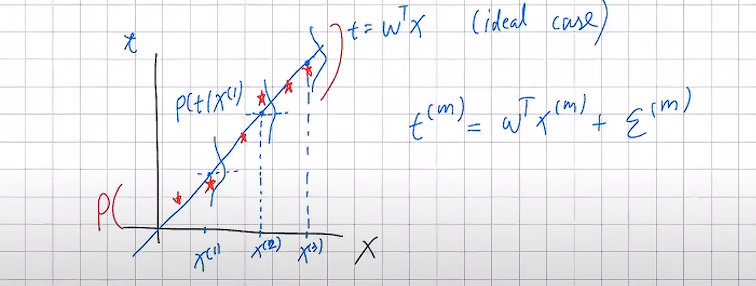 t
t = wᵀx (ideal case)
P(t|x⁽¹⁾)
t⁽ᵐ⁾ = wᵀx⁽ᵐ⁾ + ε⁽ᵐ⁾
P(
x⁽¹⁾ x⁽²⁾ x⁽³⁾
X